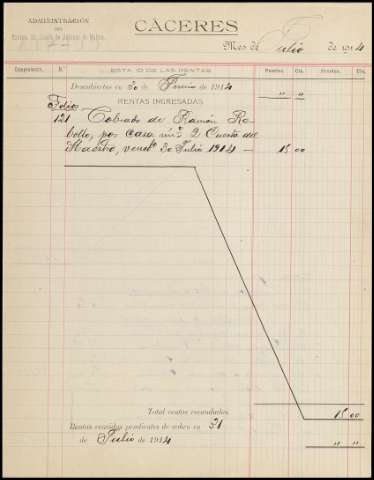 ADMINISTRACIÓN
DEL
CÁCERES
Mes de Julio de 1914
Comprobantes. N.º ESTADO DE LAS RENTAS Pesetas. Cts. Pesetas. Cts.
Descubiertos en 30 de Junio de 1914 " "
RENTAS INGRESADAS
Folio
121 Cobrado de Ramón Re-
bollo, por casa nº 2 Cuesta del
Maestro, vencº 30 Julio 1914 — 15 00
Total rentas recaudadas 15 00
Rentas vencidas pendientes de cobro en 31
de Julio de 1914 " "